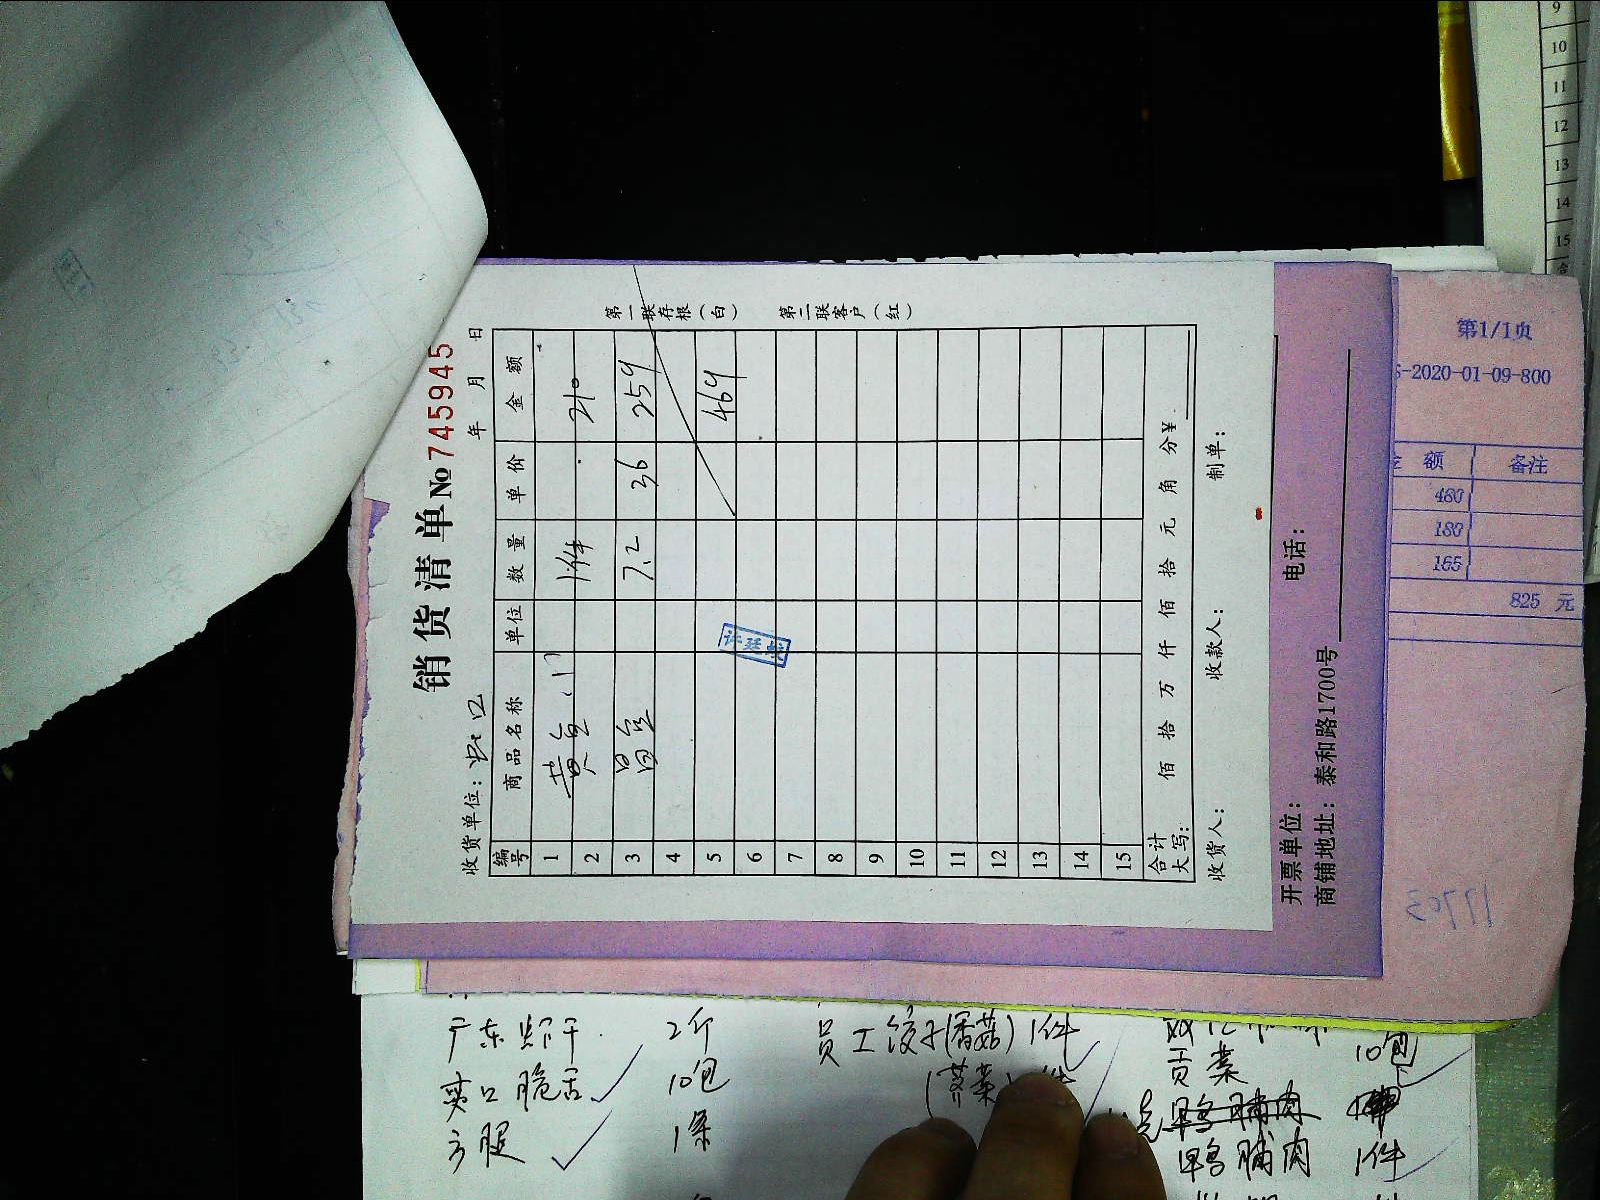 销货清单 No 745945
收货单位：虹口 年 月 日
编号 商品名称 单位 数量 单价 金额
1 黄鱼 1件 210
2
3 昌鱼 7.2 36 259
4
5 469
6
7
8
9
10
11
12
13
14
15
合计大写： 佰 拾 万 仟 佰 拾 元 角 分 ¥
收货人： 收款人： 制单：
第一联存根（白） 第二联客户（红）
开票单位： 电话：
商铺地址：泰和路1700号
第1/1页
-2020-01-09-800
额 备注
480
180
165
825 元
9
10
11
12
13
14
15
17703
2斤
爽口脆舌 10包
方腿 1条
员工饺子(香菇) 1件
贡菜 10包
鸭脯肉 1件